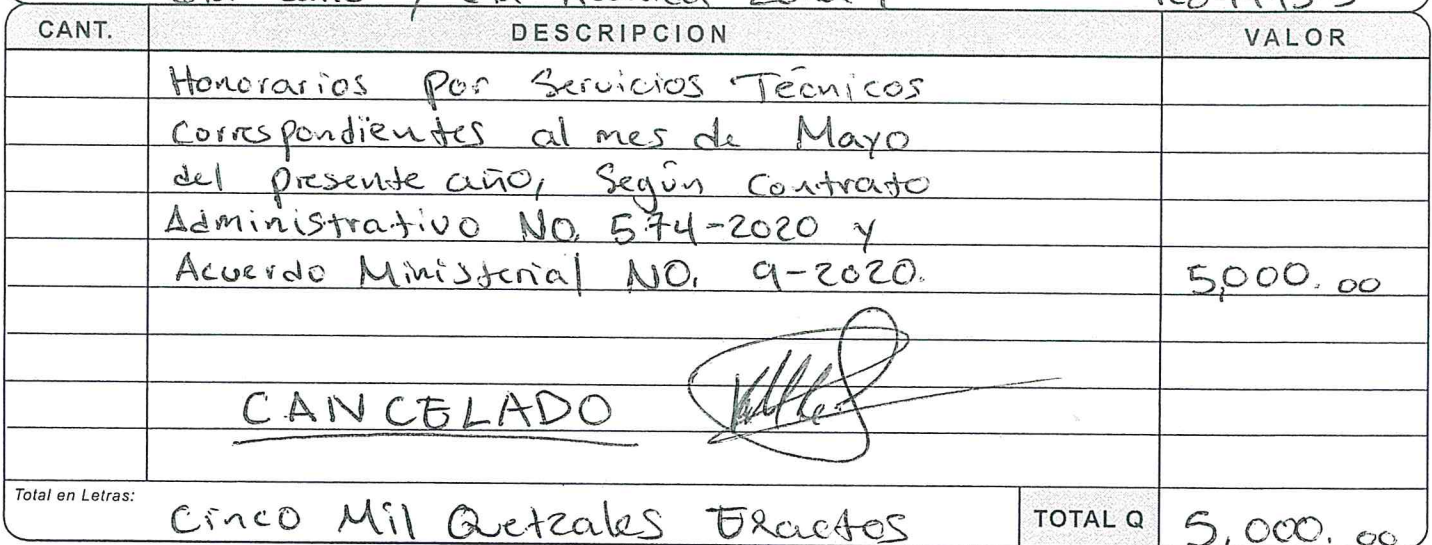 CANT. DESCRIPCION VALOR
Honorarios por Servicios Técnicos
Correspondientes al mes de Mayo
del presente año, Según Contrato
Administrativo No. 574-2020 y
Acuerdo Ministerial NO. 9-2020. 5,000.00
CANCELADO
Total en Letras: Cinco Mil Quetzales Exactos TOTAL Q 5,000.00